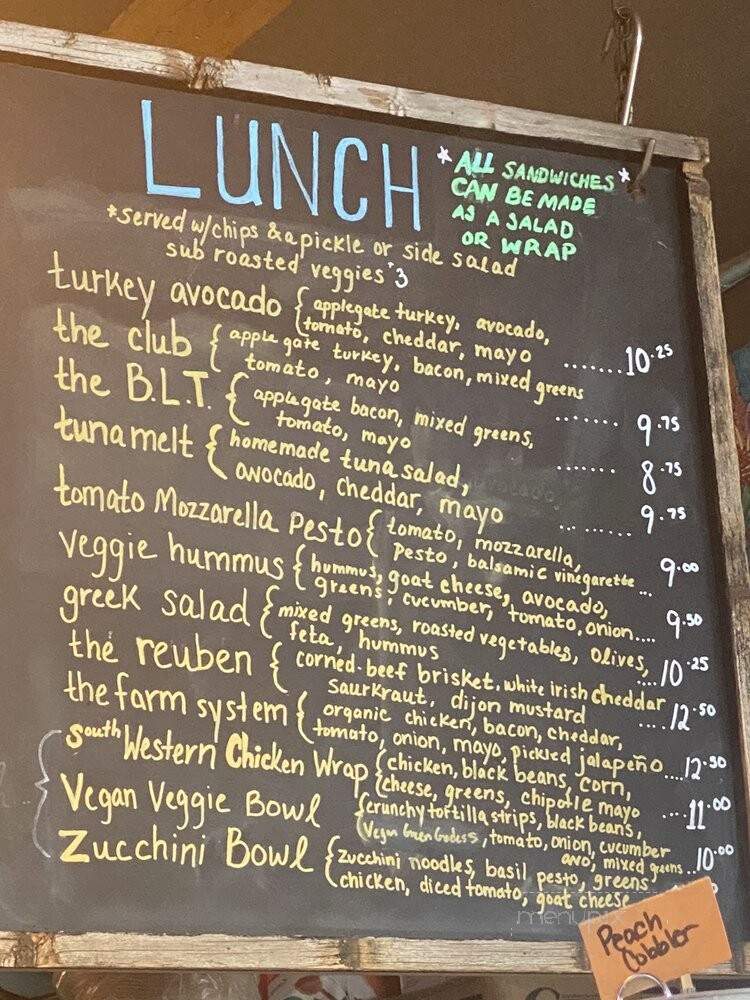 LUNCH
*ALL SANDWICHES*
CAN BE MADE
AS A SALAD
OR WRAP
*served w/chips & a pickle or side salad
sub roasted veggies $3
turkey avocado { applegate turkey, avocado,
tomato, cheddar, mayo ....... 10.25
the club { applegate turkey, bacon, mixed greens
tomato, mayo ....... 9.75
the B.L.T. { applegate bacon, mixed greens,
tomato, mayo ....... 8.75
tuna melt { homemade tuna salad,
avocado, cheddar, mayo ......... 9.75
tomato Mozzarella Pesto { tomato, mozzarella,
Pesto, balsamic vinegarette ... 9.00
veggie hummus { hummus, goat cheese, avocado,
greens, cucumber, tomato, onion.... 9.50
greek salad { mixed greens, roasted vegetables, olives,
feta, hummus .... 10.25
the reuben { corned-beef brisket, white irish cheddar
saurkraut, dijon mustard .... 12.50
the farm system { organic chicken, bacon, cheddar,
tomato, onion, mayo, pickled jalapeño .... 12.50
South Western Chicken Wrap { chicken, black beans, corn,
cheese, greens, chipotle mayo .... 11.00
Vegan Veggie Bowl { crunchy tortilla strips, black beans,
(Vegan Green Godess), tomato, onion, cucumber
avo, mixed greens .. 10.00
Zucchini Bowl { zucchini noodles, basil pesto, greens
chicken, diced tomato, goat cheese
Peach
Cobbler